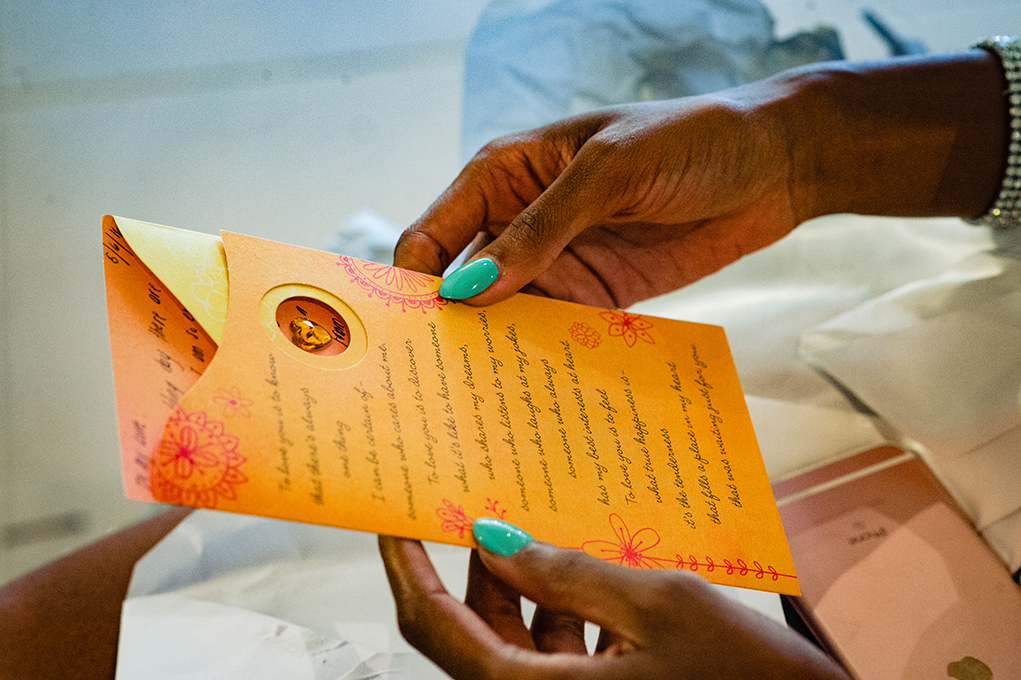 To love you is to know
that there's always
one thing
I can be certain of–
someone who cares about me.
To love you is to discover
what it's like to have someone
who shares my dreams,
someone who listens to my worries,
someone who laughs at my jokes,
someone who always
has my best interests at heart.
To love you is to feel
what true happiness is–
it's the tenderness
that fills a place in my heart
that was waiting just for you.
there are
I am so
iPhone